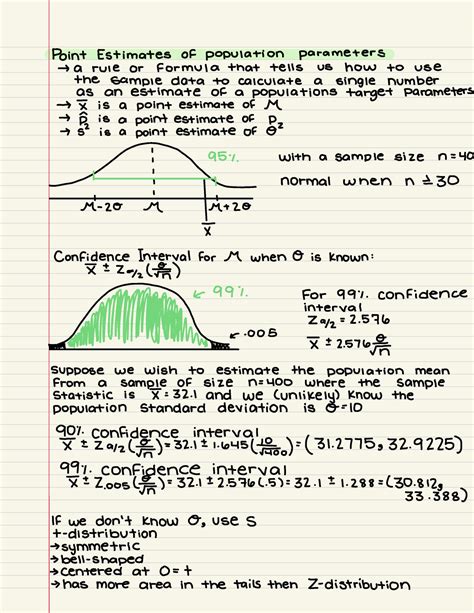 Point Estimates of population parameters
→ a rule or formula that tells us how to use
the sample data to calculate a single number
as an estimate of a populations target parameters
→ x̄ is a point estimate of M
→ p̂ is a point estimate of p
→ s² is a point estimate of θ²
95%
with a sample size n=40
normal when n ≥30
M-2θ M M+2θ
x̄
Confidence Interval for M when θ is known:
x̄ ± Zα/2 (θ/√n)
← 99%
For 99% confidence
interval
Zα/2 = 2.576
x̄ ± 2.576 θ/√n
←.005
Suppose we wish to estimate the population mean
from a sample of size n=400 where the sample
statistic is x̄=32.1 and we (unlikely) know the
population standard deviation is θ=10
90% confidence interval
x̄ ± Zα/2 (θ/√n) = 32.1 ± 1.645 (10/√400) = (31.2775, 32.9225)
99% confidence interval
x̄ ± Z.005 (θ/√n) = 32.1 ± 2.576(.5) = 32.1 ± 1.288 = (30.812,
33.388)
If we don't know θ, use S
t-distribution
→ symmetric
→ bell-shaped
→ centered at 0=t
→ has more area in the tails then Z-distribution